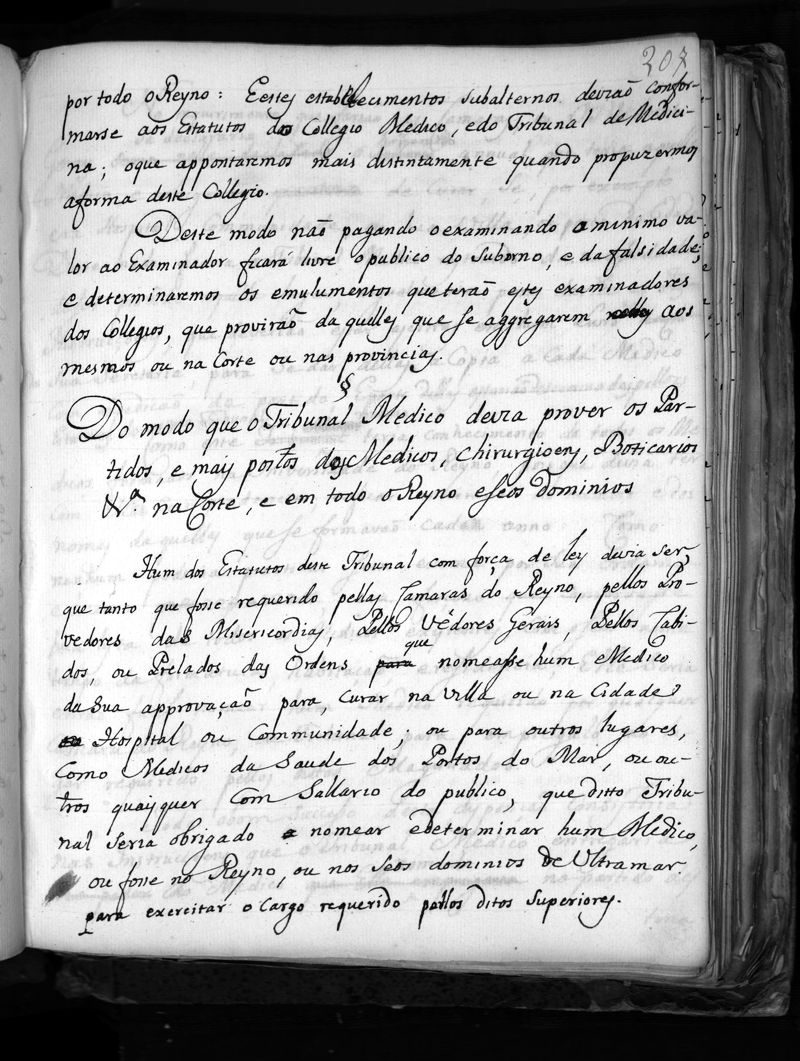 207
por todo o Reyno: E estes establecimentos subalternos devião confor-
marse aos Estatutos do Collegio Medico, e do Tribunal de Medeci-
na; oque appontaremos mais distintamente quando propuzermos
aforma deste Collegio.
Deste modo não pagando oexaminando a minimo va-
lor ao Examinador ficará livre opublico do suborno, e da falsidade;
e determinaremos os emulumentos que terão estes examinadores
dos Collegios, que provirão da quelles que se aggregarem aos
mesmos, ou na Corte ou nas provincias.
§
Do modo que o Tribunal Medico devia prover os Par-
tidos, e mais postos dos Medicos, Chirurgioens, Boticarios
&ª. na Corte, e em todo o Reyno e seos Dominios
Hum dos Estatutos deste Tribunal com força de ley devia ser,
que tanto que fosse requerido pellas Camaras do Reyno, pellos Pro-
vedores das Misericordias, Pellos Vèdores Gerais, Pellos Cabi-
dos, ou Prelados das Ordens para que nomeasse hum Medico
da Sua approvação para, curar na villa ou na Cidade
Hospital ou Communidade; ou para outros lugares,
Como Medicos da Saude dos Portos do Mar, ou ou-
tros quaysquer Com Sallario do publico, que ditto Tribu-
nal seria obrigado a nomear edeterminar hum Medico,
ou fosse no Reyno, ou nos seos dominios de Ultramar.
para exercitar o Cargo requerido pellos ditos Superiores.